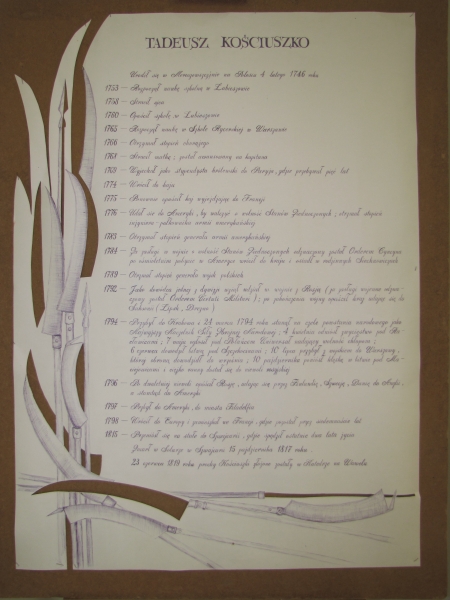 TADEUSZ KOŚCIUSZKO
Urodził się w Mereczowszczyźnie na Polesiu 4 lutego 1746 roku
1755 — Rozpoczął naukę szkolną w Lubieszowie
1758 — Stracił ojca
1760 — Opuścił szkołę w Lubieszowie
1765 — Rozpoczął naukę w Szkole Rycerskiej w Warszawie
1766 — Otrzymał stopień chorążego
1767 — Stracił matkę; został mianowany na kapitana
1769 — Wyjechał jako stypendysta królewski do Paryża, gdzie przebywał pięć lat
1774 — Wrócił do kraju
1775 — Ponownie opuścił kraj wyjeżdżając do Francji
1776 — Udał się do Ameryki, by walczyć o wolność Stanów Zjednoczonych; otrzymał stopień
inżyniera-pułkownika armii amerykańskiej
1783 — Otrzymał stopień generała armii amerykańskiej
1784 — Za udział w wojnie o wolność Stanów Zjednoczonych odznaczony został Orderem Cyncynata
po ośmioletnim pobycie w Ameryce wrócił do kraju i osiadł w rodzinnych Siechnowiczach
1789 — Otrzymał stopień generała wojsk polskich
1792 — Jako dowódca jednej z dywizji wziął udział w wojnie z Rosją (
został Orderem Virtuti Militari); po
(Lipsk, Drezno)
1794 — Przybył do Krakowa i 24 marca 1794 roku stanął na czele powstania narodowego jako
Najwyższy Naczelnik Siły Zbrojnej Narodowej; 4 kwietnia odniósł zwycięstwo pod Ra-
cławicami; 7 maja ogłosił pod Połańcem Uniwersał
6 czerwca stoczył bitwę pod Szczekocinami; 10 lipca przybył z wojskiem do Warszawy,
której obroną dowodził do września; 10 października poniósł klęskę w bitwie pod Macie-
jowicami i ciężko ranny dostał się do niewoli rosyjskiej
1796 — Po dwuletniej niewoli opuścił Rosję, udając się przez Finlandię, Szwecję,
Anglię,
do Ameryki
1797 — Przybył do Ameryki, do miasta Filadelfia
1798 — Wrócił do Europy i zamieszkał we Francji, gdzie
1815 — Przeniósł się na stałe do Szwajcarii, gdzie spędził ostatnie dwa lata życia
Zmarł w Solurze w Szwajcarii 15 października 1817 roku
23 czerwca 1819 roku prochy Kościuszki złożone zostały w Katedrze na Wawelu